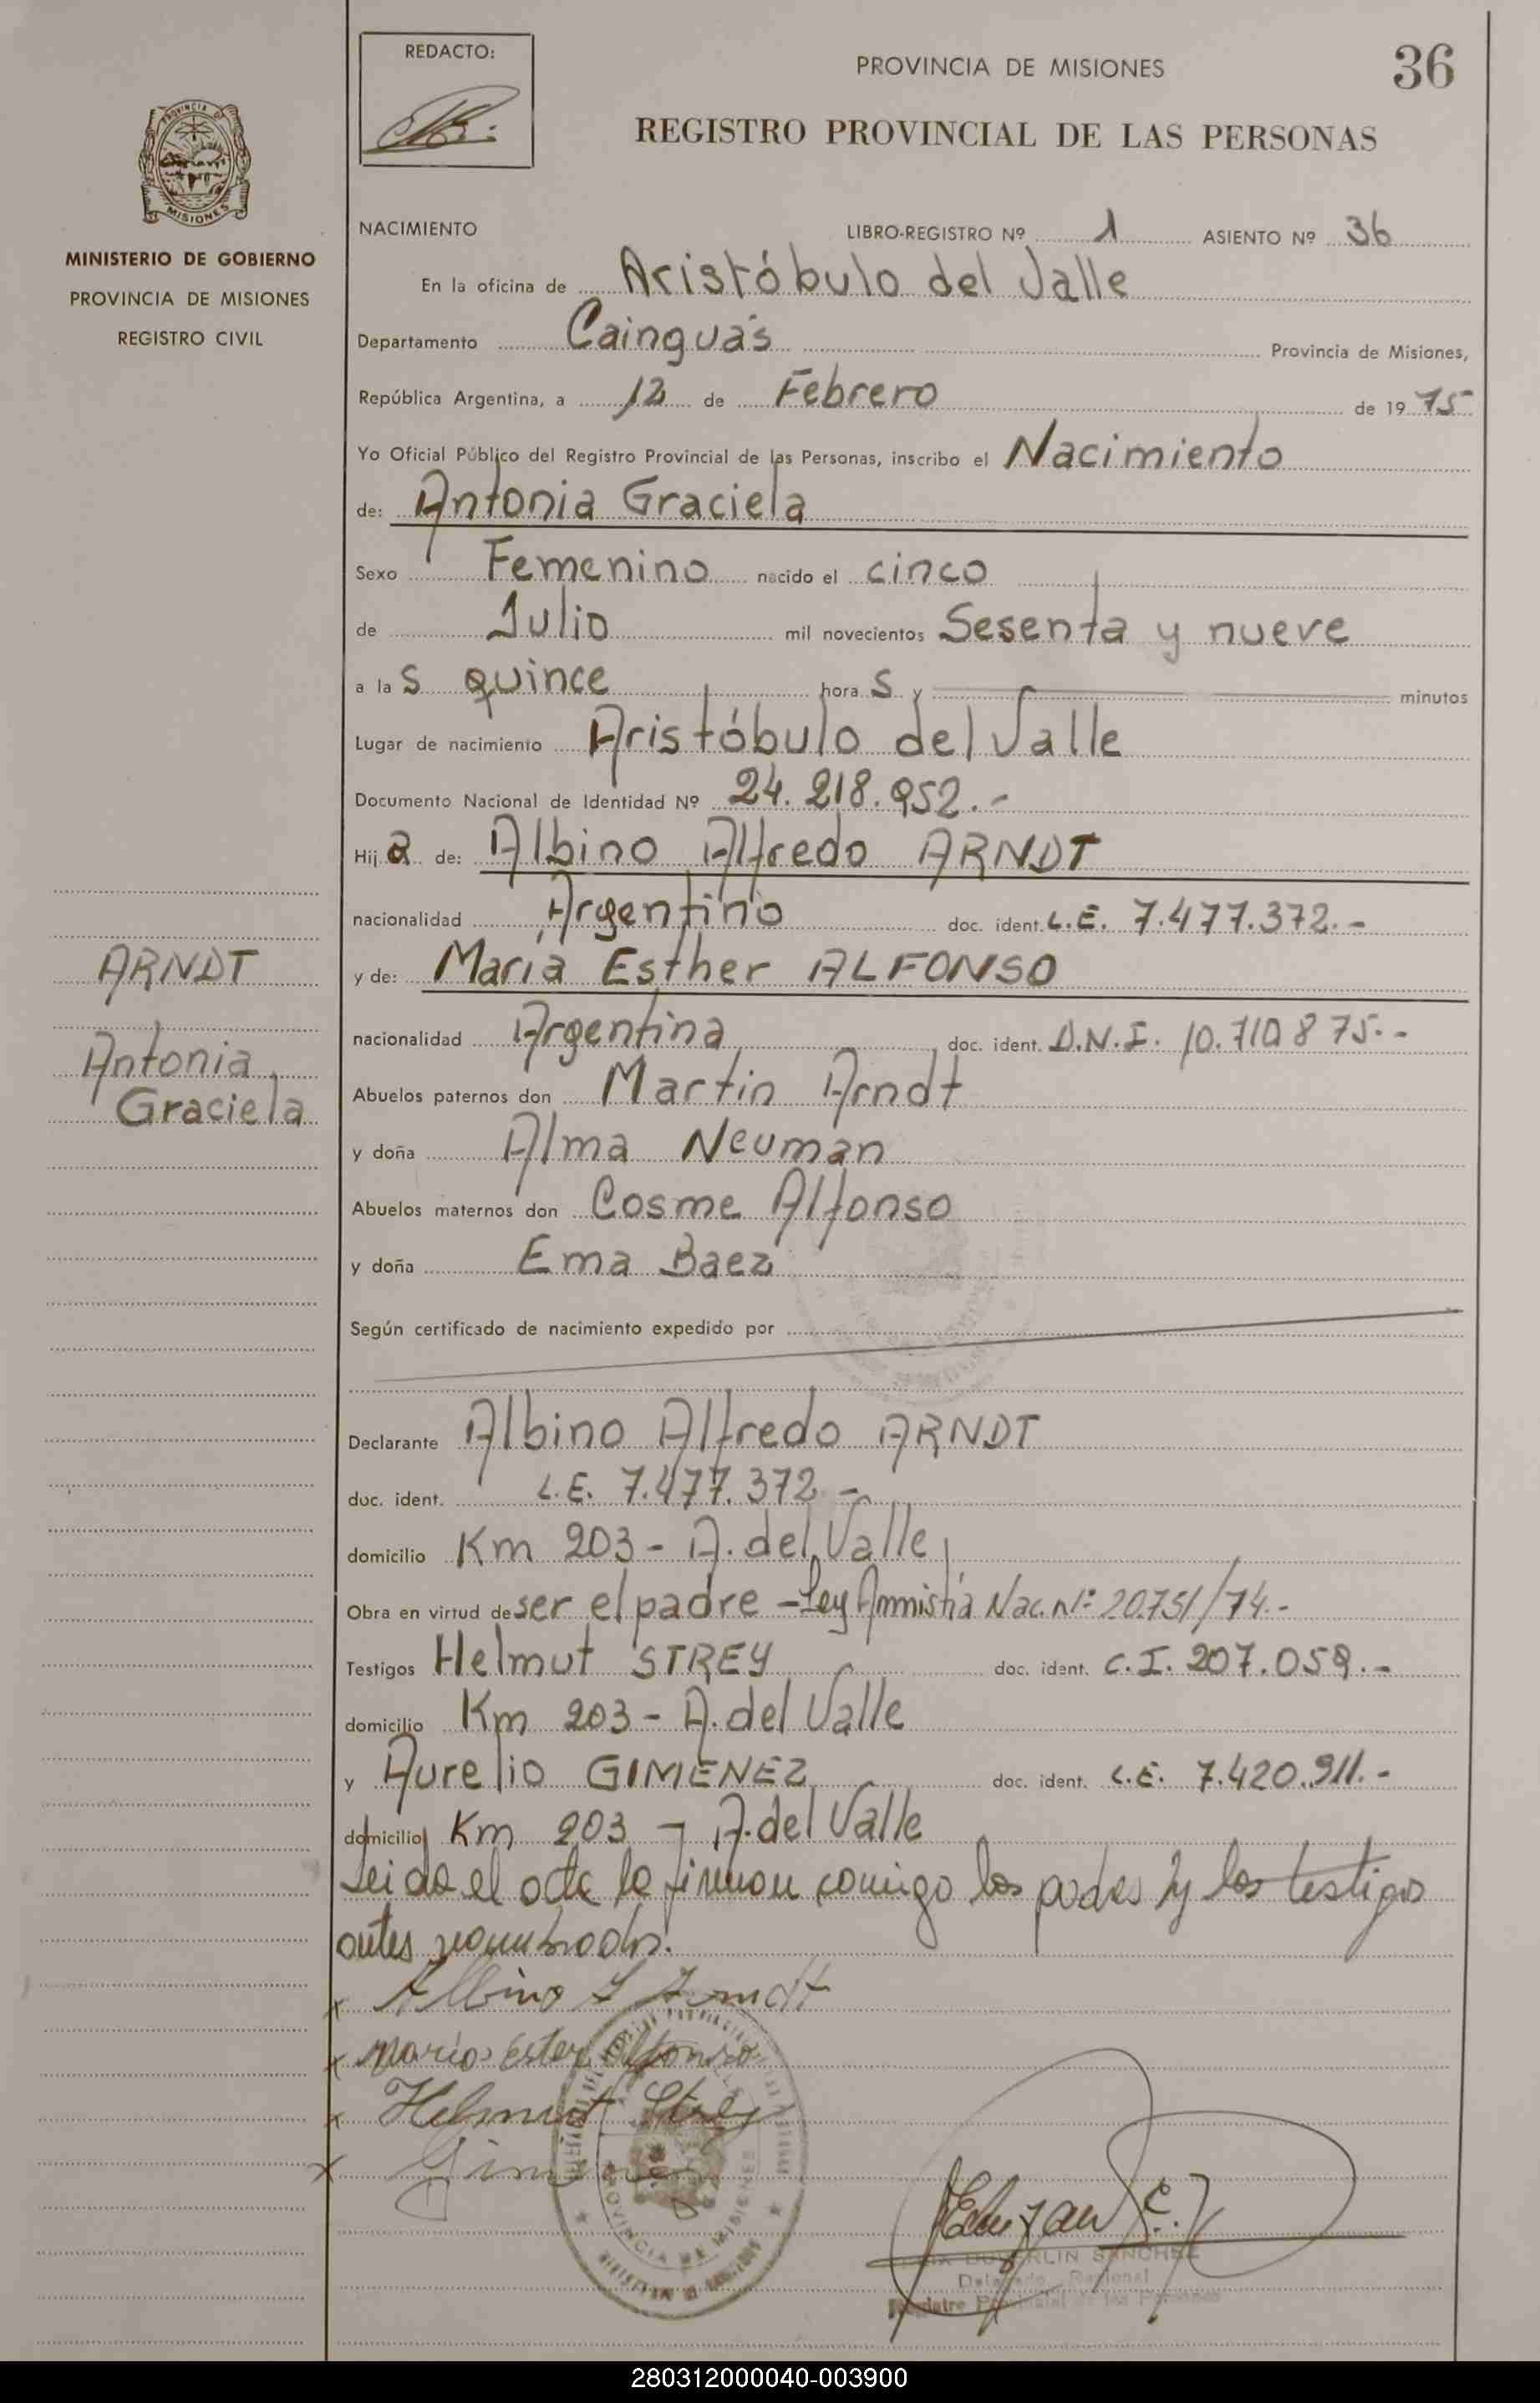 REDACTO:
PROVINCIA DE MISIONES
36
REGISTRO PROVINCIAL DE LAS PERSONAS
PROVINCIA D
MISIONES
MINISTERIO DE GOBIERNO
PROVINCIA DE MISIONES
REGISTRO CIVIL
NACIMIENTO LIBRO-REGISTRO Nº 1 ASIENTO Nº 36
En la oficina de Aristóbulo del Valle
Departamento Cainguás Provincia de Misiones,
República Argentina, a 12 de Febrero de 1975
Yo Oficial Público del Registro Provincial de las Personas, inscribo el Nacimiento
de: Antonia Graciela
Sexo Femenino nacido el cinco
de Julio mil novecientos Sesenta y nueve
a las quince horas y minutos
Lugar de nacimiento Aristóbulo del Valle
Documento Nacional de Identidad Nº 24.218.952.-
Hija de: Albino Alfredo ARNDT
nacionalidad Argentino doc. ident. L.E. 7.477.372.-
ARNDT
y de: María Esther ALFONSO
nacionalidad Argentina doc. ident. D.N.I. 10.710875.-
Antonia
Graciela
Abuelos paternos don Martin Arndt
y doña Alma Neuman
Abuelos maternos don Cosme Alfonso
y doña Ema Baez
Según certificado de nacimiento expedido por
Declarante Albino Alfredo ARNDT
doc. ident. L.E. 7.477.372.-
domicilio Km 203 - A. del Valle
Obra en virtud de ser el padre - Ley Amnistía Nac. nº 20751/74.-
Testigos Helmut STREY doc. ident. C.I. 207.059.-
domicilio Km 203 - A. del Valle
y Aurelio GIMENEZ doc. ident. L.E. 7.420.911.-
domicilio Km 203 - A. del Valle
Leida el acta la firman comigo los padres y los testigos
antes nombrados.
x Albino A Arndt
x Maria Ester Alfonso
x Helmut Strey
x Gimenez
PROVINCIA DE MISIONES
SANCHEZ
Delegado Regional
Registro Provincial de las Personas
280312000040-003900